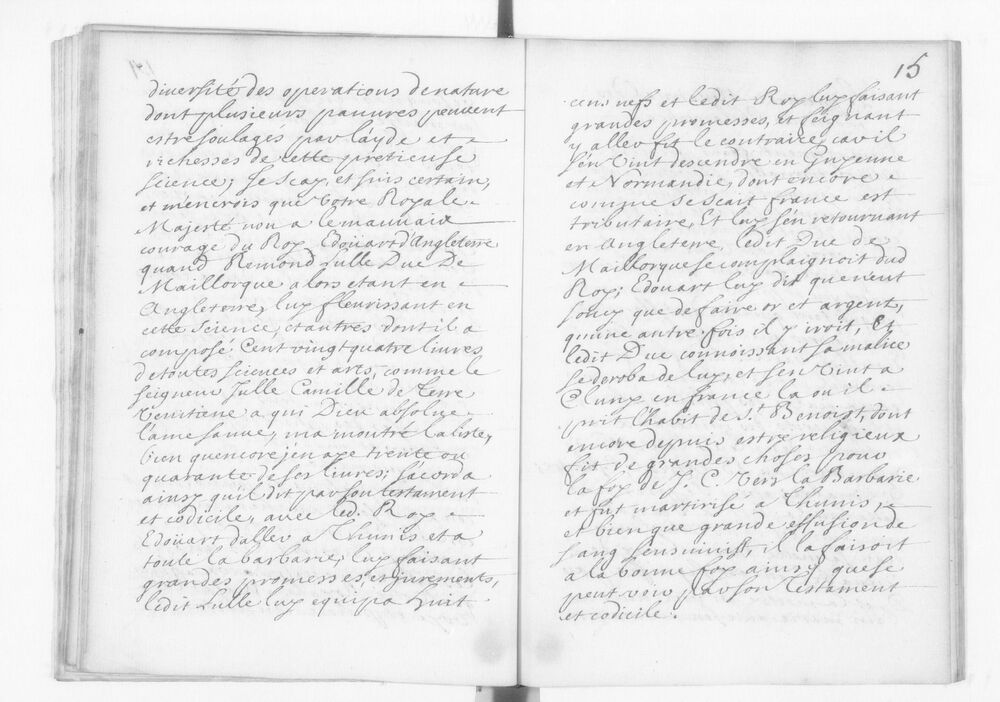 diversité des operations de nature
dont plusieurs pauures peuuent
estre soulagés par layde et
richesses de cette pretieuse
science; Je scay, et suis certain,
et m'encrois que Votre Royale
Majesté non a le mauuaix
courage du Roy Edoüart d'Angleterre
quand Remond Lulle Duc De
Maillorque alors etant en
Angleterre, luy fleurissant en
cette science, et autres dont il a
composé Cent vingt quatre liures
de toutes sciences et arts, comme le
seigneur Julle Camille de Terre
Venitiene a qui Dieu absolue
l'ame sauue, ma montré la liste,
bien quencore jen aye trente ou
quarante de ses liures; sacorda
ainsy qu'il dit par son testament
et codicile, auec led. Roy
Edoüart daller a Thunis et a
toute la barbarie, luy faisant
grandes promesses, et jurements,
ledit Lulle luy equipa huit
15
cens nefs et ledit Roy luy faisant
grandes promesses, et feignant
y aller fit le contraire, car il
s'en Vint descendre en Guyenne
et Normandie, dont encore
comme se scait france est
tributaire, Et luy s'en retournant
en Angleterre, ledit Duc de
Maillorque se complaignoit dud
Roy; Edoüart luy dit quen eut
soucy que de faire or et argent,
quune autre fois il y iroit, Et
ledit Duc connoissant sa malice
se deroba de luy, et s'en Vint a
Cluny en france la ou il
prit l'habit de S.t Benoist, dont
encore depuis estre religieux
fit de grandes choses pour
la foy de J. C. Vers la Barbarie
et fut martirisé a Thunis,
et bien que grande effusion de
sang sensuiuist, il la faisoit
a la bonne foy ainsy que se
peut voir par son Testament
et codicile.